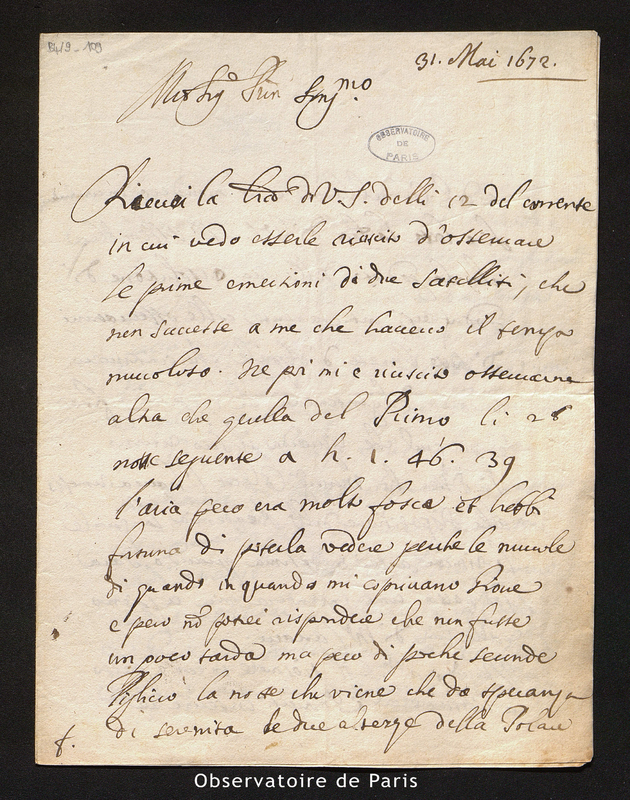 B4/9-109
31. Mai 1672.
OBSERVATOIRE
DE
PARIS
la di V.S. delli 12 del corrente
in cui vedo esserle riuscito d'osservare
le prime emersioni di due satelliti, che
non successe a me che havevo il tempo
nuvoloso. Ne poi mi è riuscito osservarne
altra che quella del Primo li 28
notte seguente a h. 1. 46. 39
l'aria pero era molto fosca et hebbi
fortuna di poterla vedere perche le nuvole
di quando in quando mi coprivano Giove
e pero nō potei rispondere che non fusse
un poco tarda ma pero di poche secunde
la notte che viene che da speranza
di serenita le due alterze della Polare
f.
Observatoire de Paris